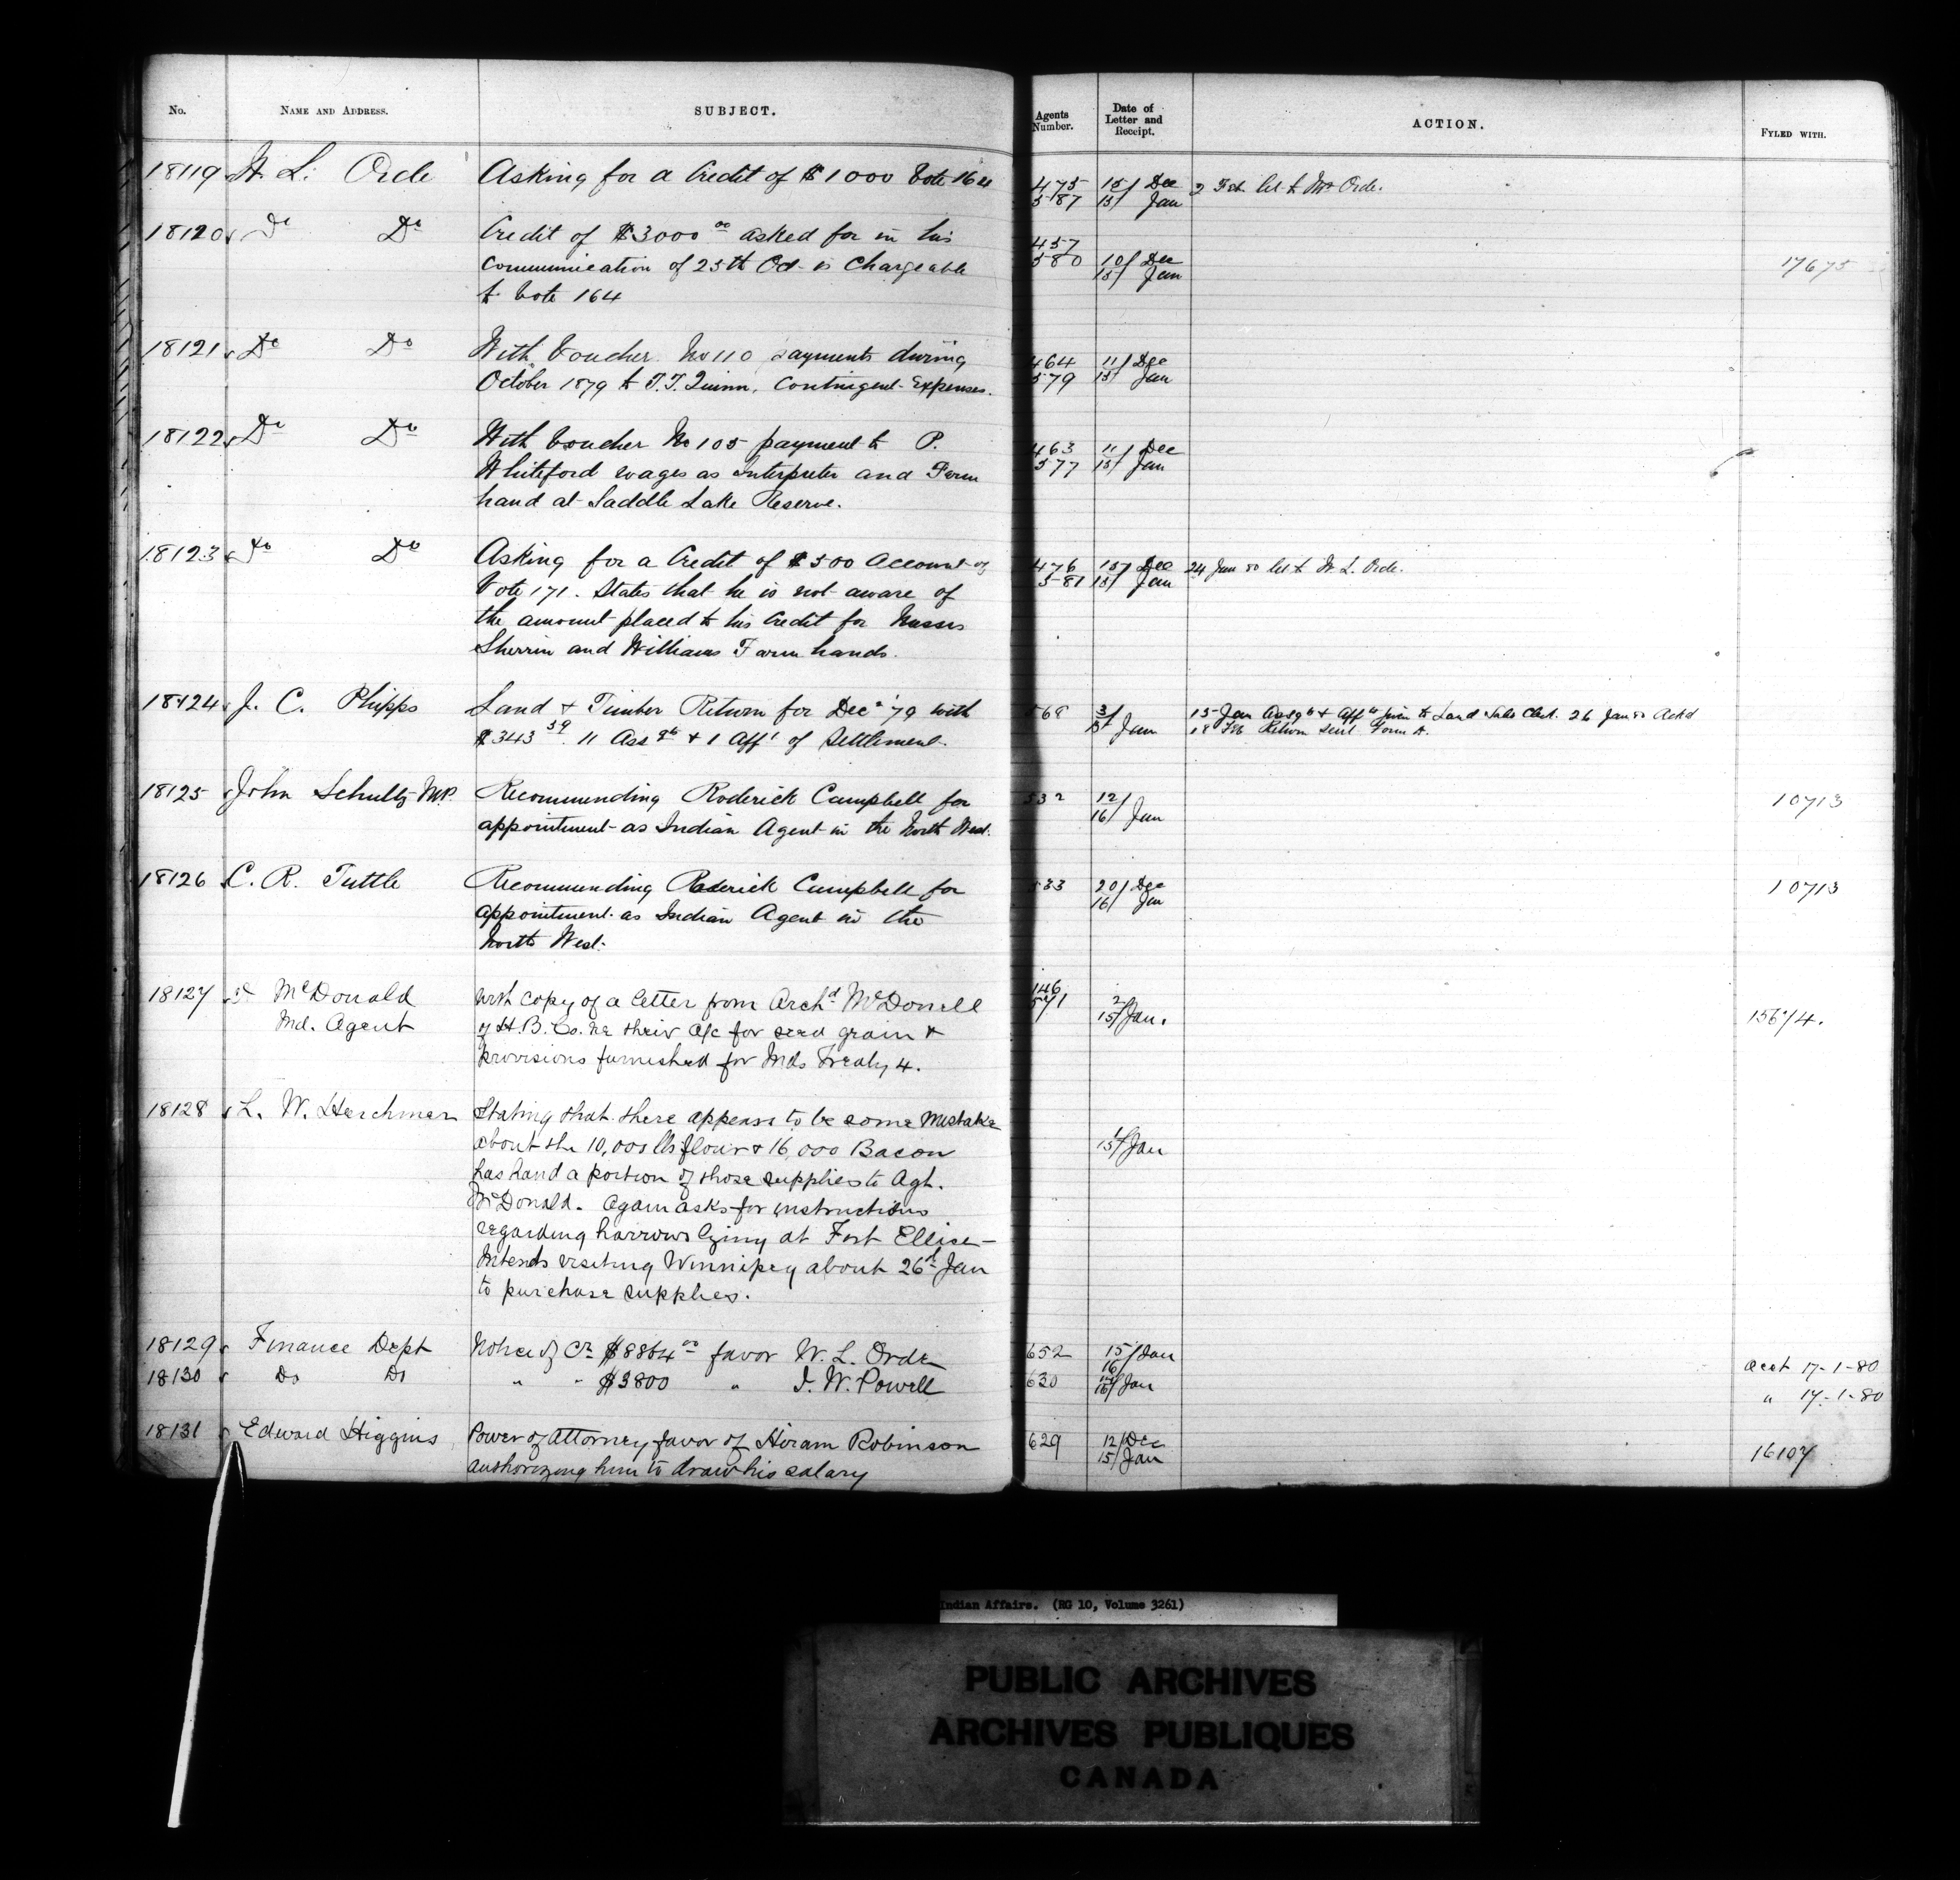 No.
NAME AND ADDRESS.
SUBJECT.
Agents Number.
Date of Letter and Receipt.
ACTION.
FYLED WITH.
18119 W. L. Orde Asking for a Credit of $1000 Vote 164 475 587 15/ Dec 15/ Jan 2 Feb. let to Mr Orde.
18120 Do Do Credit of $3000 00 asked for in his 457 580 10/ Dec 15/ Jan 17675
communication of 25th Oct is Chargeable
to Vote 164
18121 Do Do With Voucher No 110 payments during 464 579 11/ Dec 15/ Jan
October 1879 to T.T. Quinn, Contingent Expenses.
18122 Do Do With Voucher No 105 payment to P. 463 577 11/ Dec 15/ Jan
Whiteford wages as Interpreter and Farm
hand at Saddle Lake Reserve.
18123 Do Do Asking for a Credit of $500 Account of 476 581 15/ Dec 15/ Jan 24 Jan 80 let to W. L. Orde.
Vote 171. States that he is not aware of
the amount placed to his Credit for Messrs
Sherrin and Williams Farm hands.
18124 J. C. Phipps Land & Timber Return for Decr '79 with 568 3/ 15/ Jan 15 Jan Assgts & Affts given to Land Sales Clerk. 26 Jan 80 Ackd
$343 59. 11 Assgts & 1 Afft of Settlement. 18 Feb Return sent Form A.
18125 John Schultz M.P. Recommending Roderick Campbell for 532 12/ 16/ Jan 10713
appointment as Indian Agent in the North West.
18126 C. R. Tuttle Recommending Roderick Campbell for 533 20/ Dec 16/ Jan 10713
appointment as Indian Agent in the
North West.
18127 McDonald With copy of a letter from Archd McDonell 146 571 2/ 15/ Jan. 15674.
Ind. Agent of H. B. Co. re their a/c for seed grain &
provisions furnished for Inds Treaty 4.
18128 L. W. Herchmer Stating that there appears to be some mistake 15/ Jan
about the 10,000 lbs flour & 16,000 Bacon
has hand a portion of those supplies to Agt.
McDonald. Again asks for instructions
regarding harrows lying at Fort Ellice—
Intends visiting Winnipeg about 26d Jan
to purchase supplies.
18129 Finance Dept Notice of Cr. $8864 00 favor W. L. Orde 652 15/ Jan 16/ acct 17-1-80
18130 Do Do " " $3800 " I. W. Powell 630 16/ Jan " 17-1-80
18131 Edward Higgins Power of Attorney favor of Hiram Robinson 629 12/ Dec 15/ Jan 16107
authorizing him to draw his salary
Indian Affairs. (RG 10, Volume 3261)
PUBLIC ARCHIVES
ARCHIVES PUBLIQUES
CANADA